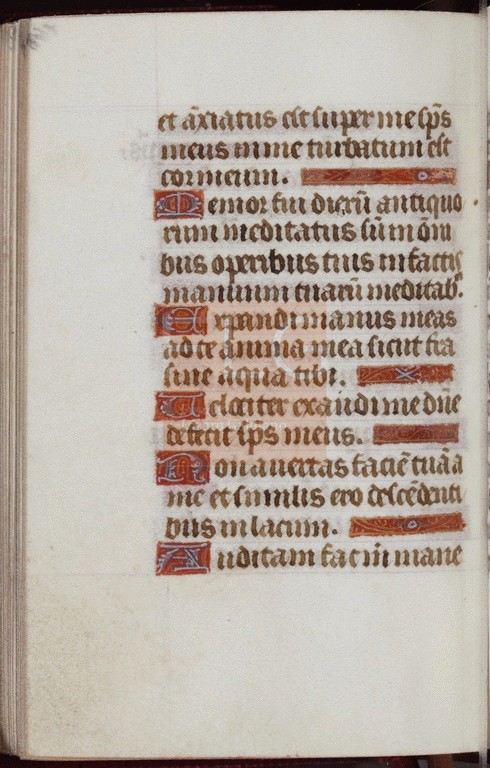 et āxiatus est super me sp̄s
meus in me turbatum est
cor meum.
Memor fui dierū antiquo
rum meditatus sū in om̄i
bus operibus tuis in factis
manuum tuarū meditab'.
Expandi manus meas
ad te anima mea sicut t̄ra
sine aqua tibi.
Velociter exaudi me dn̄e
defecit sp̄s meus.
Non avertas faciē tuā a
me et similis ero descēdenti
bus in lacum.
Auditam fac m̄ mane